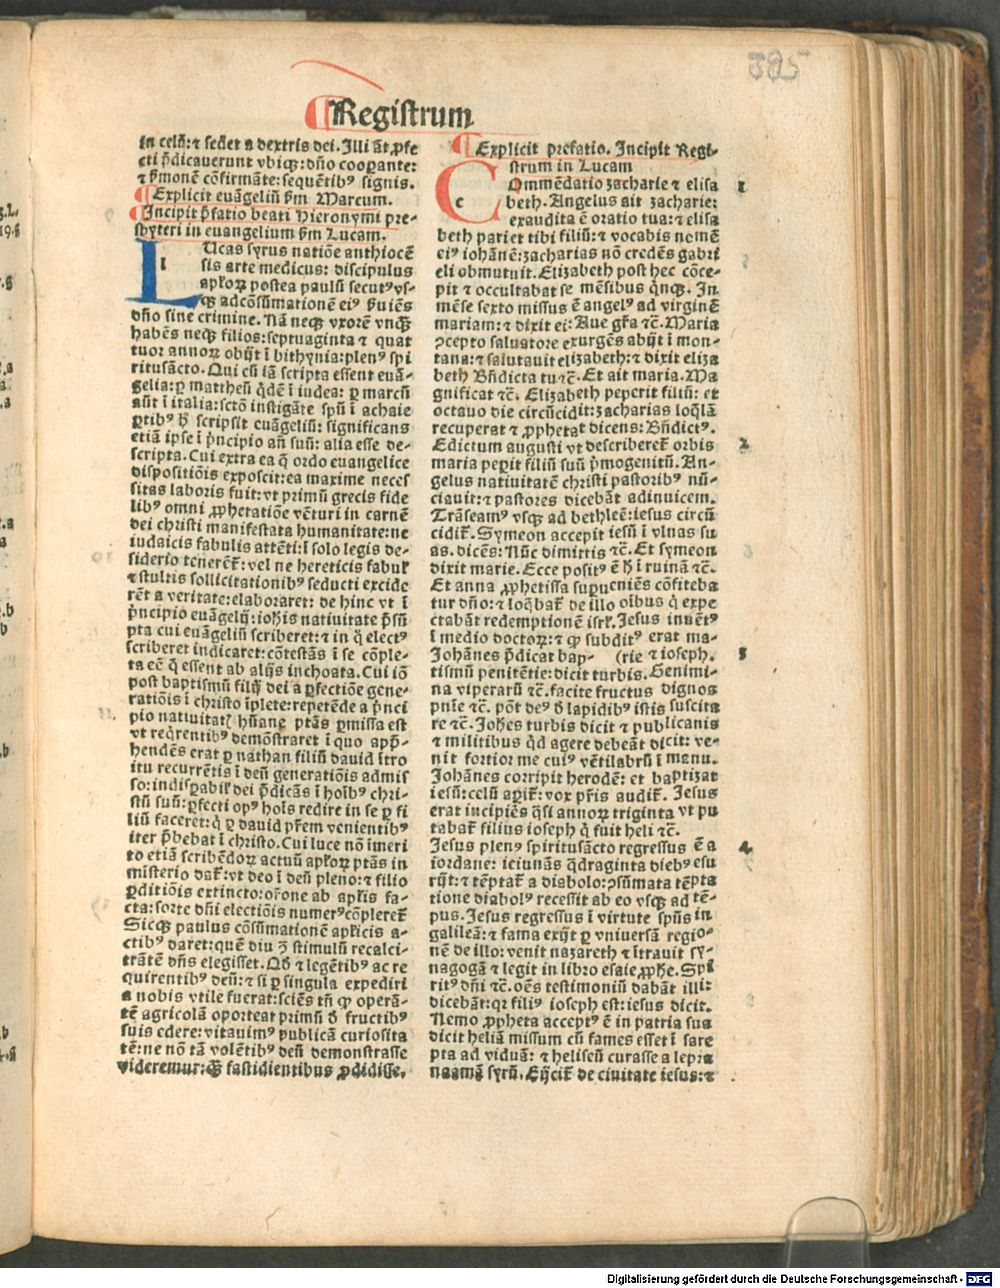 385
Registrum
in celū: ⁊ sedet a dextris dei. Illi āt ꝓfe
cti p̄dicauerunt vbiqꝫ: dño cooꝑante:
⁊ ẜmonē cōfirmāte: sequētibꝰ signis.
¶ Explicit euāgeliū ẜm Marcum.
¶ Incipit p̄fatio beati Hieronymi pre-
sbyteri in euangelium ẜm Lucam.
LUcas syrus natiōe anthiocē
sis arte medicus: discipulus
apl'oꝝ postea paulū secutꝰ vs-
qꝫ ad cōsūmationē eiꝰ ẜuiēs
dño sine crimine. Nā neqꝫ vxorē vnqꝫ̄
habēs neqꝫ filios: septuaginta ⁊ quat
tuor annoꝝ obijt ī bithynia: plenꝰ spi
ritusācto. Qui cū iā scripta essent euā-
gelia: ꝑ mattheū q̄dē ī iudea: ꝑ marcū
aūt ī italia: sctō instigāte spū ī achaie
ꝑtibꝰ hͦ scripsit euāgeliū: significans
etiā ipse ī p̄ncipio añ suū: alia esse de-
scripta. Cui extra ea q̄ ordo euangelice
dispositiōis exposcit: ea maxime neces
sitas laboris fuit: vt primū grecis fide
libꝰ omni ꝓphetatiōe vēturi in carnē
dei christi manifestata humanitate: ne
iudaicis fabulis attēti: ī solo legis de-
siderio tenerēt̄: vel ne hereticis fabul'
⁊ stultis sollicitationibꝰ seducti excide
rēt a veritate: elaboraret: de hinc vt ī
p̄ncipio euāgelij: ioh̄is natiuitate p̄sū
pta cui euāgeliū scriberet: ⁊ in q̄ electꝰ
scriberet indicaret: cōtestās ī se cōple-
ta eē q̄ essent ab alijs inchoata. Cui iō
post baptismū filij dei a ꝑfectiōe gene-
ratiōis ī christo īplete: repetēde a p̄nci
pio natiuitatꝭ hūane ptās ꝑmissa est
vt reqrētibꝰ demōstraret ī quo app̄-
hendēs erat ꝑ nathan filiū dauid ītro
itu recurrētis ī deū generatiōis admis
so: indisꝑabil' dei p̄dicās ī hoībꝰ chri-
stū suū: ꝑfecti opꝰ hoīs redire in se ꝑ fi
liū faceret: q̄ ꝑ dauid pr̄em venientibꝰ
iter p̄bebat ī christo. Cui luce nō īmeri
to etiā scribēdoꝝ actuū apl'oꝝ ptās in
misterio dat̄: vt deo ī deū pleno: ⁊ filio
ꝑditiōis extincto: or̄one ab apl'is fa-
cta: sorte dn̄i electiōis numerꝰ cōpleret̄
Sicqꝫ paulus cōsūmationē apl'icis a-
ctibꝰ daret: quē diu ꝯ̄ stimulū recalci-
trātē dn̄s elegisset. Qd̄ ⁊ legētibꝰ ac re
quirentibꝰ deū: ⁊ si ꝑ singula expediri
a nobis vtile fuerat: sciēs tn̄ ꝙ operā-
tē agricolā oporteat primū d̄ fructibꝰ
suis edere: vitauimꝰ publicā curiosita
tē: ne nō tā volētibꝰ deū demonstrasse
videremur: qꝫ̄ fastidientibus ꝓdidisse.
¶ Explicit prefatio. Incipit Regi-
strum in Lucam
COmmēdatio zacharie ⁊ elisa 1
beth. Angelus ait zacharie:
exaudita ē oratio tua: ⁊ elisa
beth pariet tibi filiū: ⁊ vocabis nomē
eiꝰ iohānē: zacharias nō credēs gabri
eli obmutuit. Elizabeth post hec cōce-
pit ⁊ occultabat se mēsibus q̄nqꝫ. In
mēse sexto missus ē angelꝰ ad virginē
mariam: ⁊ dixit ei: Aue gr̄a ⁊c̄. Maria
ꝯcepto saluatore exurgēs abijt ī mon-
tana: ⁊ salutauit elizabeth: ⁊ dixit eliza
beth Bn̄dicta tu ⁊c̄. Et ait maria. Ma
gnificat ⁊c̄. Elizabeth peperit filiū: et
octauo die circūcidit: zacharias loq̄lā
recuperat ⁊ ꝓphetat dicens: Bn̄dictꝰ.
Edictum augusti vt describeret̄ orbis 2
maria peꝑit filiū suū p̄mogenitū. An-
gelus natiuitatē christi pastoribꝰ nū-
ciauit: ⁊ pastores dicebāt adinuicem.
Trāseamꝰ vsqꝫ ad bethleē: iesus circū
cidit̄. Symeon accepit iesū ī vlnas su
as. dicēs: Nūc dimittis ⁊c̄. Et symeon
dixit marie. Ecce positꝰ ē hͦ ī ruinā ⁊c̄.
Et anna ꝓphetissa suꝑueniēs cōfiteba
tur dño: ⁊ loq̄bat̄ de illo oībus q̄ expe
ctabāt redemptionē isrl'. Iesus inuētꝰ
ī medio doctoꝝ: ⁊ ꝙ subditꝰ erat ma-
Johānes p̄dicat bap- (rie ⁊ ioseph. 3
tismū penitētie: dicit turbis. Genimi-
na viperarū ⁊c̄. facite fructus dignos
pn̄ie ⁊c̄. pōt deꝰ d̄ lapidibꝰ istis suscita
re ⁊c̄. Joh̄es turbis dicit ⁊ publicanis
⁊ militibus q̄d agere debeāt dicit: ve-
nit fortior me cuiꝰ vētilabrū ī manu.
Johānes corripit herodē: et baptizat
iesū: celū aꝑit̄: vox pr̄is audit̄. Jesus
erat incipiēs q̄si annoꝝ triginta vt pu
tabat̄ filius ioseph q̄ fuit heli ⁊c̄.
Jesus plenꝰ spiritusācto regressus ē a 4
iordane: ieiunās q̄draginta diebꝰ esu
rijt: ⁊ tēptat̄ a diabolo: ꝯsūmata tēpta
tione diabolꝰ recessit ab eo vsqꝫ ad tē-
pus. Jesus regressus ī virtute spūs in
galileā: ⁊ fama exijt ꝑ vniuersā regio-
nē de illo: venit nazareth ⁊ ītrauit sy-
nagogā ⁊ legit in libro esaie ꝓph̄e. Spi
ritꝰ dn̄i ⁊c̄. oēs testimoniū dabāt illi:
dicebāt: qꝛ filiꝰ ioseph est: iesus dicit.
Nemo ꝓpheta acceptꝰ ē in patria sua
dicit heliā missum cū fames esset ī sare
pta ad viduā: ⁊ heliseū curasse a lepra
naamā syrū. Eijcit̄ de ciuitate iesus: ⁊
Digitalisierung gefördert durch die Deutsche Forschungsgemeinschaft - DFG